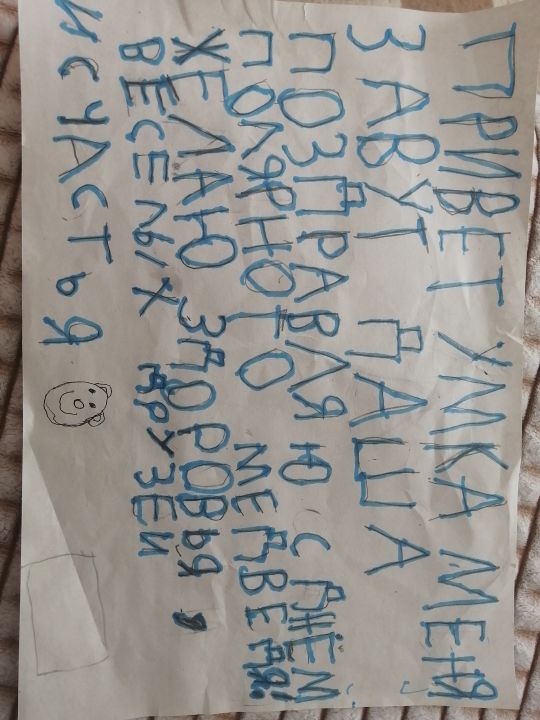 ПРИВЕТ УМКА МЕНЯ
ЗАВУТ ДАША
ПОЗДРАВЛЯЮ С ДНЁМ
ПОЛЯРНОГО МЕДВЕДЯ!
ЖЕЛАЮ ЗДОРОВЬЯ,
ВЕСЕЛЫХ ДРУЗЕИ
И СЧАСТЬЯ